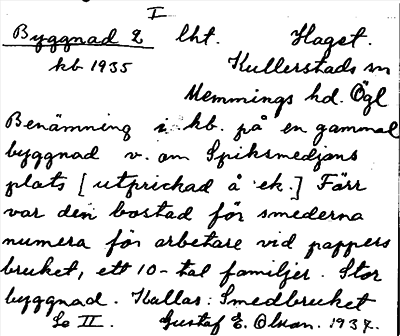 I
Byggnad 2 lht. Haget.
kb 1935 Kullerstads sn
Memmings hd. Ögl
Benämning i kb. på en gammal
byggnad v. om Spiksmedjans
plats [utprickad å ek.] Förr
var den bostad för smederna
numera för arbetare vid pappers
bruket, ett 10-tal familjer. Stor
byggnad. Kallas: Smedbruket
Se II. Gustaf E. Olsson. 1937.